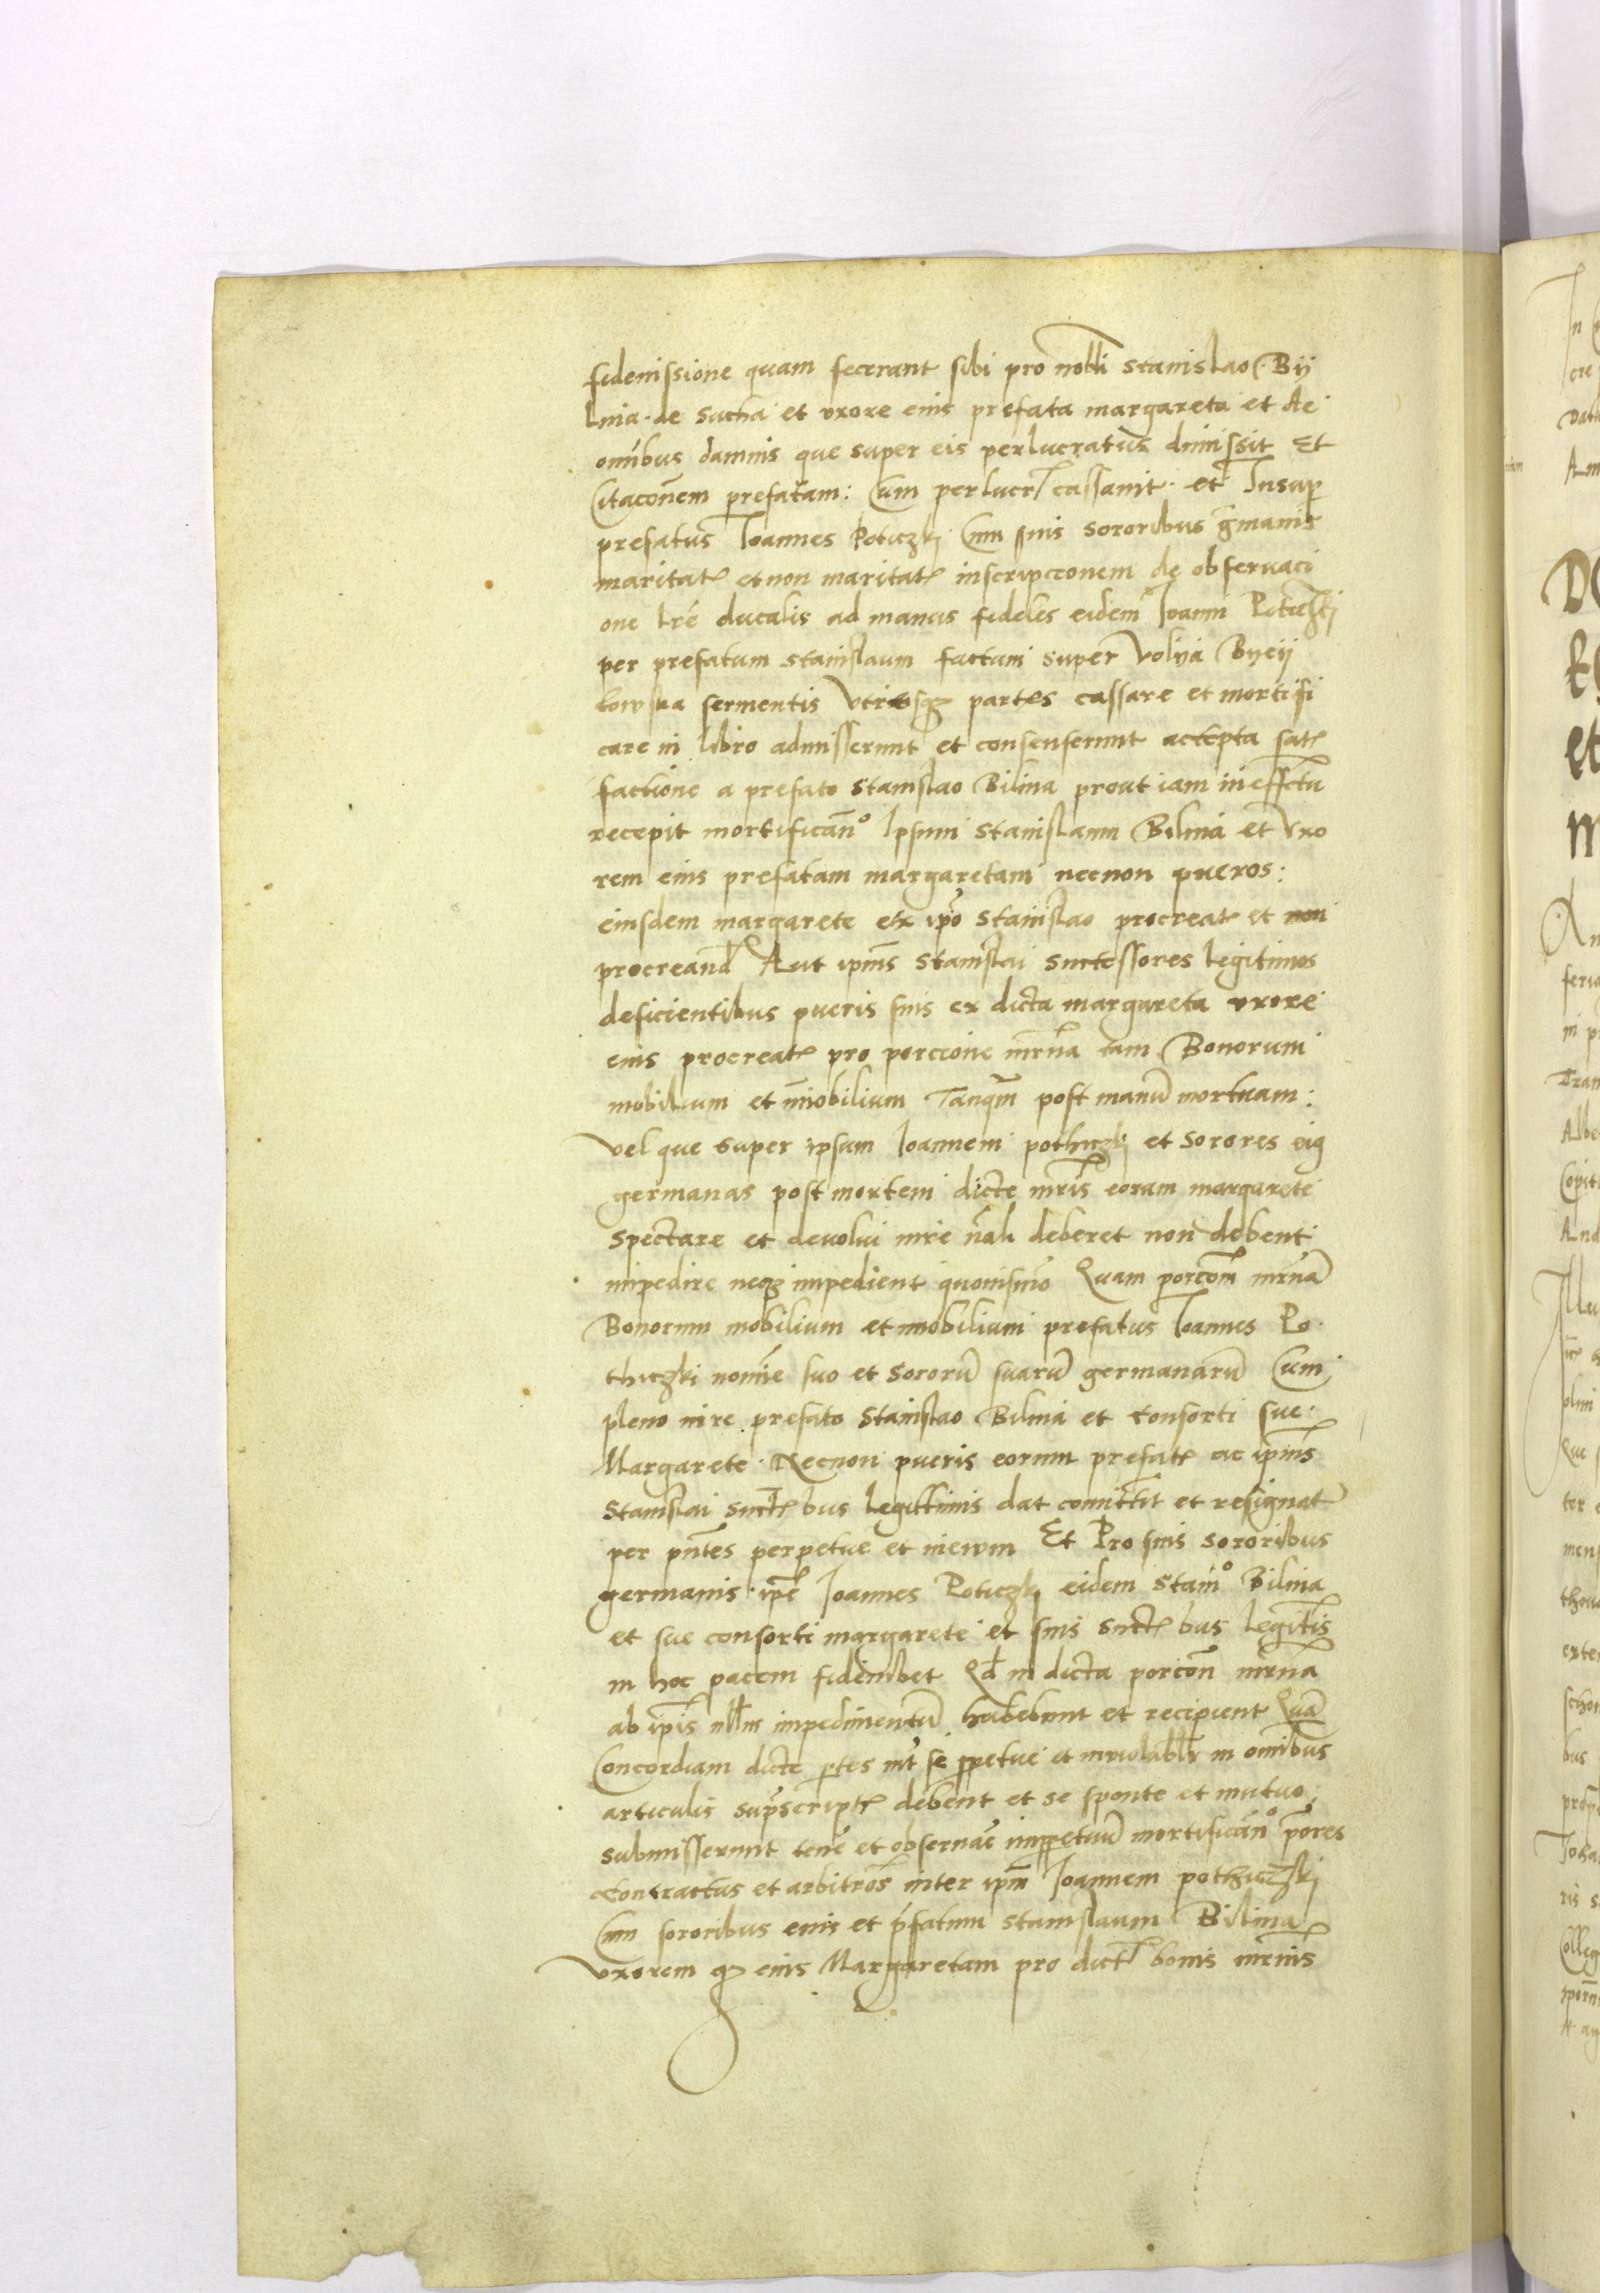 fideiussione quam fecerant sibi pro nobli Stanislao Bij
lina de Sucha et uxore eius prefata margareta et de
omibus damnis que super eis perlucratus dimissit Et
Citaconem prefatam: cum perlucr cassavit et Insup
prefatus Ioannes Poticzki Cum suis sororibus gmanis
maritat et non maritat inscripcionem de observaci
one lre ducalis ad manus fideles eidem Ioanni Poticzki
per prefatum Stanislaum factam super Volija Bijeij
kowska fermentis utriusq partes cassare et mortifi
care in libro admisserunt et consenserunt accepta satis
factione a prefato Stanislao Bilina prout iam in effectu
recepit mortificano Ipsum Stanislaum Bilina et Uxo
rem eius prefatam margaretam necnon pueros:
eiusdem margarete ex ipo Stanislao procreat et non
procreand Aut ipius Stanislai successores legitimos
deficientibus pueris suis ex dicta margareta uxore
eius procreat pro porcione mrna tam Bonorum
mobilium et imobilium Tanqm post manu mortuam:
vel que super ipsum Ioannem pothiczki et sorores eig
germanas post mortem dicte mris eoram margarete
spectare et devolvi iure nali deberet non debent
impedire neqz impedient quovismo Quam porcom mrna
Bonorum mobilium et imobilium prefatus Ioannes Po
thiczki nomie suo et sororu suaru germanaru Cum
pleno iure prefato Stanislao Bilina et consorti sue
Margarete Necnon pueris eorum prefat ac ipius
Stanislai succbus legittimis dat comittit et resignat
per pntes perpetue et in ewm Et Pro suis sororibus
germanis ipe Ioannes Poticzki eidem Stanio Bilina
et sue consorti margarete et suis succbus legitis
in hoc pacem fideiubet Qd in dicta porcon mrna
ab ipis nllm impedimentu habebunt et recipient Qua
Concordiam dicte ptes int se ppetue et inviolablr in omibus
articulis suprscript debent et se sponte et mutuo
submisserunt tene et observae imppetuu mortificano pores
contractus et arbitros inter ipm Ioannem pothiczki
Cum sororibus eius et pfatum Stanislaum Bilina
uxorem qz eius Margaretam pro dict bonis mrnis